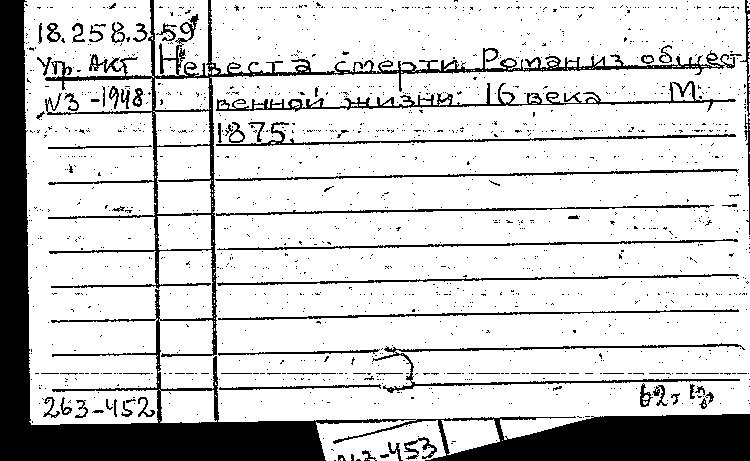 18.258.3.59
Утр. Акт Невеста смерти. Роман из общест-
N3 -1948. венной жизни 16 века М.,
1875.
263-452 62г.
263-453